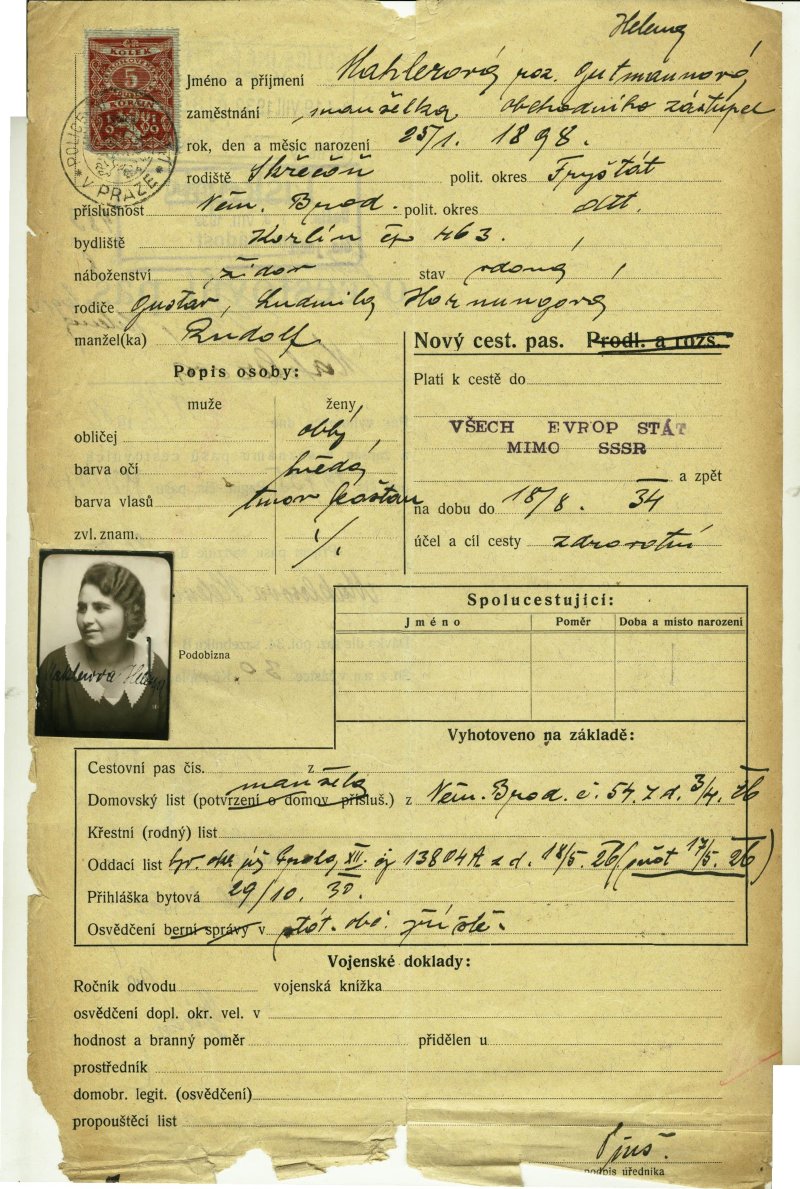 Helena
KOLEK
5
V PRAZE
Jméno a příjmení Mahlerová roz. Gutmannová
zaměstnání manželka obchodního zástupce
rok, den a měsíc narození 25/1. 1898.
rodiště Skřečoň polit. okres Fryštát
příslušnost Něm. Brod. polit. okres dtt.
bydliště Karlín čp 463.
náboženství židov stav vdaná
rodiče Gustav, Ludmila Hornungova
manžel(ka) Rudolf
Nový cest. pas. Prodl. a rozš.
Popis osoby:
muže ženy
obličej oblý
barva očí hnědá
barva vlasů tmav kaštan
zvl. znam. ·/.
Platí k cestě do
VŠECH EVROP STÁT
MIMO SSSR
a zpět
na dobu do 18/8. 34
účel a cíl cesty zdravotní
Podobizna
Mahlerova Helena
Spolucestující:
Jméno Poměr Doba a místo narození
Vyhotoveno na základě:
Cestovní pas čís. z
manžela
Domovský list (potvrzení o domov. přísluš.) z Něm. Brod. č. 54. z d. 3/4. 26
Křestní (rodný) list
Oddací list XII. 13804A z d. 18/5. 26 17/5. 26)
Přihláška bytová 29/10. 30.
Osvědčení berní správy v stát. obč.
Vojenské doklady:
Ročník odvodu vojenská knížka
osvědčení dopl. okr. vel. v
hodnost a branný poměr přidělen u
prostředník
domobr. legit. (osvědčení)
propouštěcí list
podpis úředníka